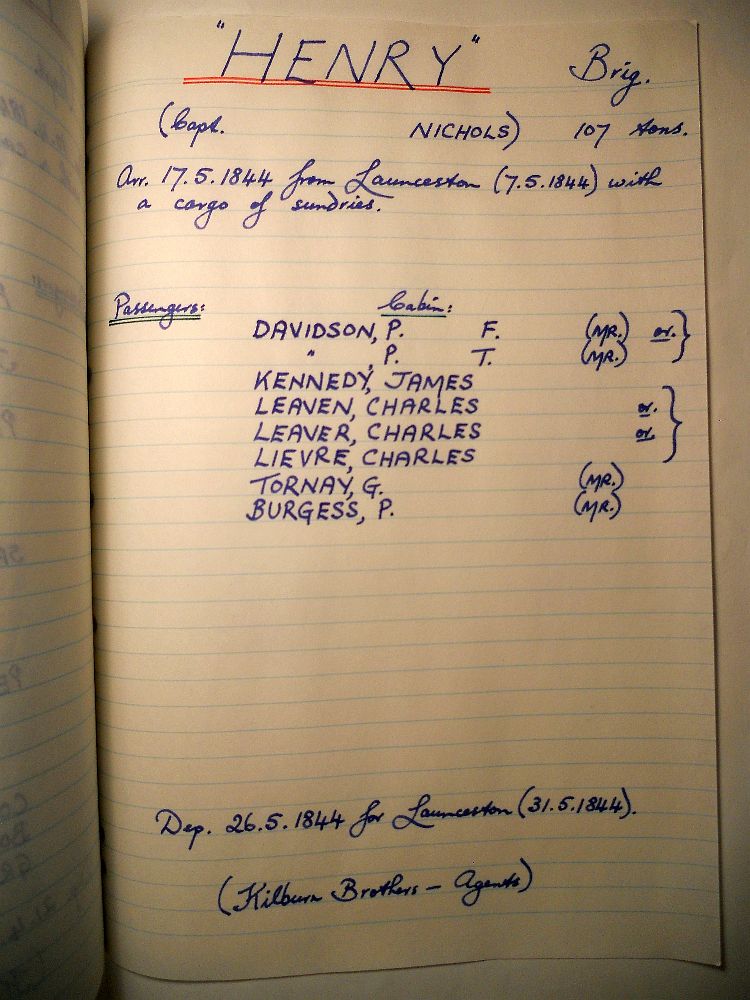 "HENRY" Brig.
(Capt. NICHOLS) 107 tons.
Arr. 17.5.1844 from Launceston (7.5.1844) with
a cargo of sundries.
Passengers: Cabin:
DAVIDSON, P. F. (MR.) or. }
" , P. T. (MR.)
KENNEDY, JAMES
LEAVEN, CHARLES or. }
LEAVER, CHARLES or.
LIEVRE, CHARLES
TORNAY, G. (MR.)
BURGESS, P. (MR.)
Dep. 26.5.1844 for Launceston (31.5.1844).
(Kilburn Brothers – Agents)